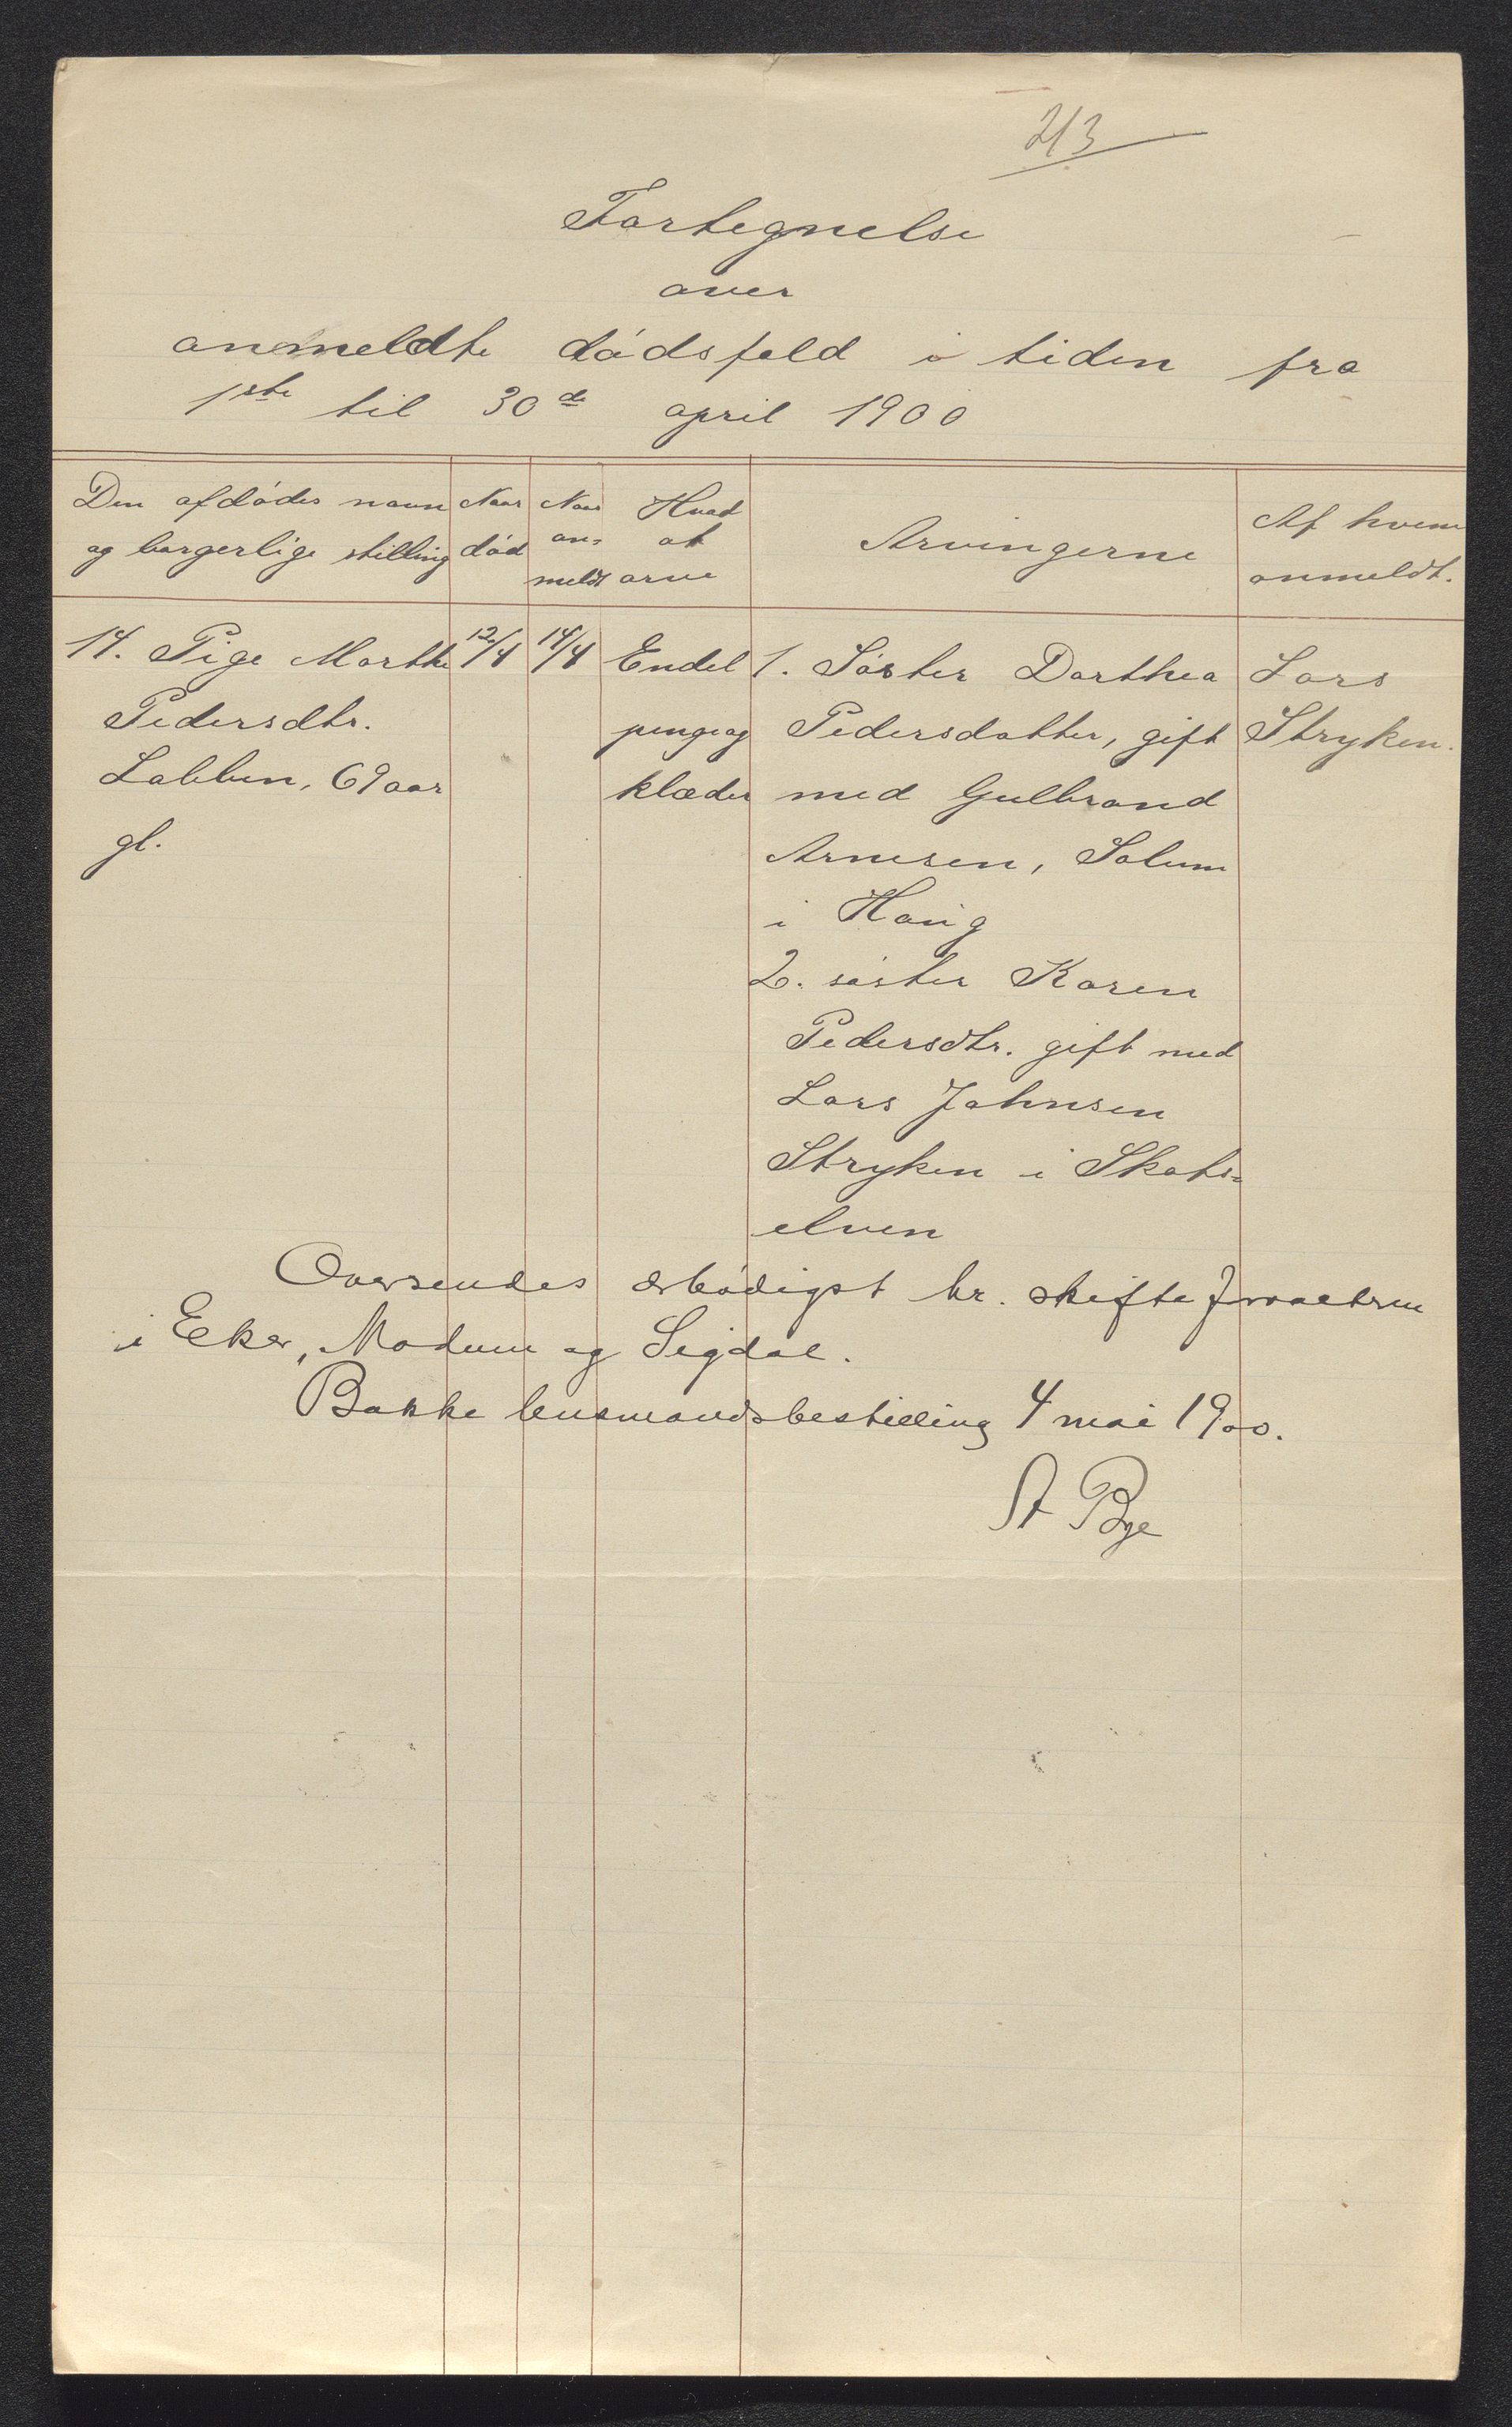 213
Fortegnelse
over
anmeldte dødsfald i tiden fra
1ste til 30de april 1900
Den afdødes navn og borgerlige stilling
Naar død
Naar an-meldt
Hvad at arve
Arvingerne
Af hvem anmeldt.
14. Pige Marthe
Pedersdtr.
Løbben, 69 aar
gl.
12/4
14/4
Endel
penge og
klæder
1. Søster Dorthea
Pedersdatter, gift
med Gulbrand
Arnesen, Solum
i Haug
2. søster Karen
Pedersdtr. gift med
Lars Johnsen
Stryken i Skots-
elven
Lars
Stryken.
Oversendes ærbødigst hr. skifteforvalteren
i Eker, Modum og Sigdal.
Bakke lensmandsbestilling 4 mai 1900.
A Bye